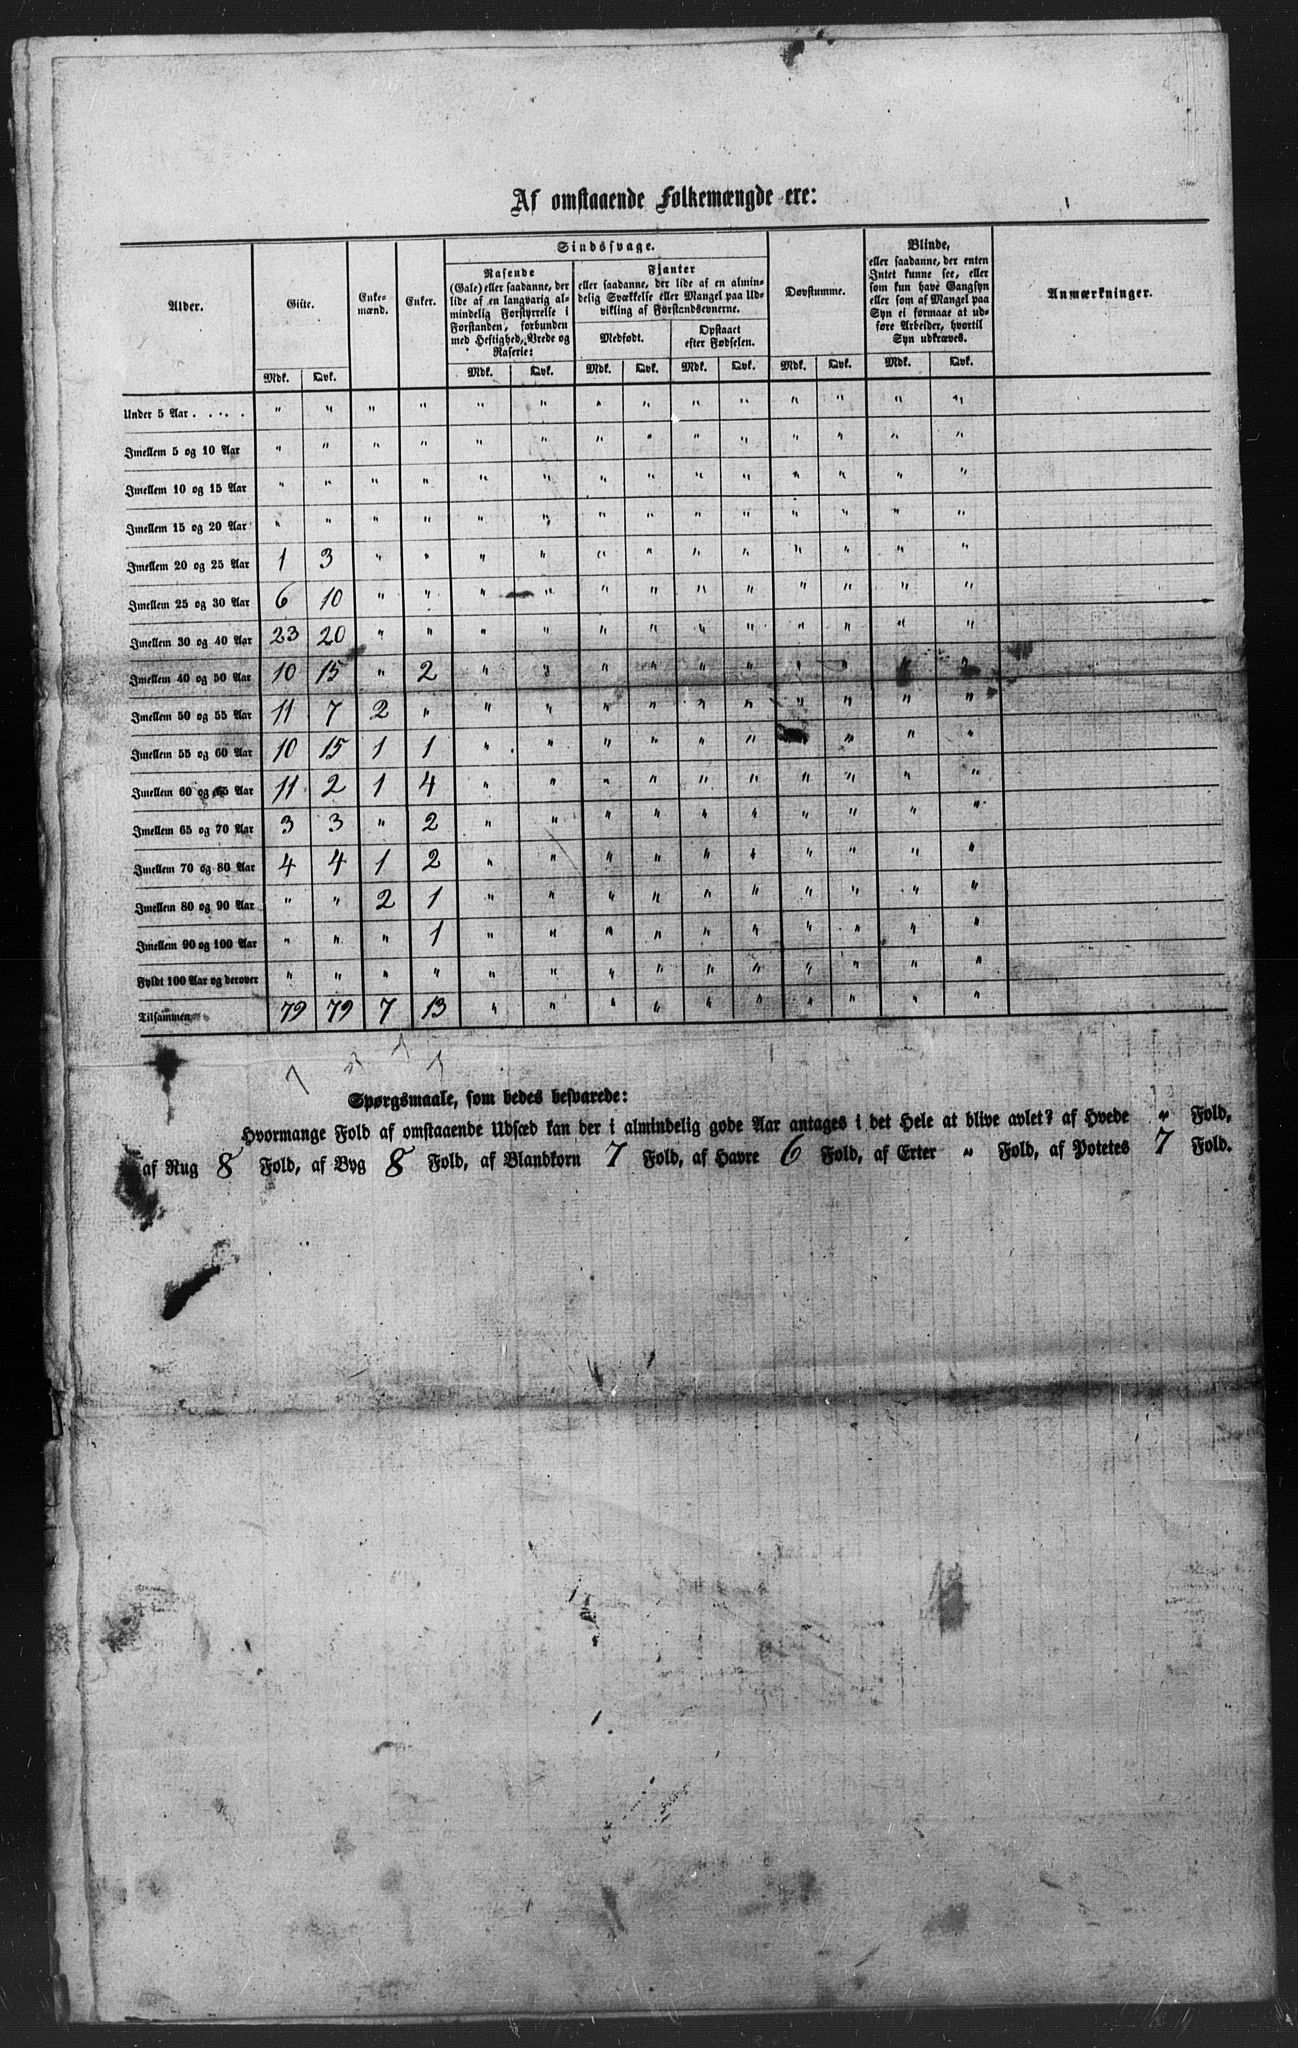 Af omstaaende Folkemængde ere:
Alder. | Gifte. | Enke-mænd. | Enker. | Sindssvage. | Døvstumme. | Blinde, eller saadanne, der enten Intet kunne see, eller som kun have Gangsyn eller som af Mangel paa Syn ei formaae at ud-føre Arbeider, hvortil Syn udkræves. | Anmærkninger.
Rasende (Gale) eller saadanne, der lide af en langvarig al-mindelig Forstyrrelse i Forstanden, forbunden med Heftighed, Vrede og Raserie: | Fjanter eller saadanne, der lide af en almin-delig Svækkelse eller Mangel paa Ud-vikling af Forstandsevnerne.
Medfødt. | Opstaaet efter Fødselen.
Mdk. | Qvk. | Mdk. | Qvk. | Mdk. | Qvk. | Mdk. | Qvk. | Mdk. | Qvk. | Mdk. | Qvk.
Under 5 Aar . . . . . | " | " | " | " | " | " | " | " | " | " | " | " | " | "
Imellem 5 og 10 Aar | " | " | " | " | " | " | " | " | " | " | " | " | " | "
Imellem 10 og 15 Aar | " | " | " | " | " | " | " | " | " | " | " | " | " | "
Imellem 15 og 20 Aar | " | " | " | " | " | " | " | " | " | " | " | " | " | "
Imellem 20 og 25 Aar | 1 | 3 | " | " | " | " | " | " | " | " | " | " | " | "
Imellem 25 og 30 Aar | 6 | 10 | " | " | " | " | " | " | " | " | " | " | " | "
Imellem 30 og 40 Aar | 23 | 20 | " | " | " | " | " | " | " | " | " | " | " | "
Imellem 40 og 50 Aar | 10 | 15 | " | 2 | " | " | " | " | " | " | " | " | " | "
Imellem 50 og 55 Aar | 11 | 7 | 2 | " | " | " | " | " | " | " | " | " | " | "
Imellem 55 og 60 Aar | 10 | 15 | 1 | 1 | " | " | " | " | " | " | | " | " | "
Imellem 60 og 65 Aar | 11 | 2 | 1 | 4 | " | " | " | " | " | " | " | " | " | "
Imellem 65 og 70 Aar | 3 | 3 | " | 2 | " | " | " | " | " | " | " | " | " | "
Imellem 70 og 80 Aar | 4 | 4 | 1 | 2 | " | " | " | " | " | " | " | " | " | "
Imellem 80 og 90 Aar | " | " | 2 | 1 | " | " | " | " | " | " | " | " | " | "
Imellem 90 og 100 Aar | " | " | " | 1 | " | " | " | " | " | " | " | " | " | "
Fyldt 100 Aar og derover | " | " | " | " | " | " | " | " | " | " | " | " | " | "
Tilsammen | 79 | 79 | 7 | 13 | " | " | " | " | " | " | " | " | " | "
Spørgsmaale, som bedes besvarede:
Hvormange Fold af omstaaende Udsæd kan der i almindelig gode Aar antages i det Hele at blive avlet? af Hvede " Fold,
af Rug 8 Fold, af Byg 8 Fold, af Blandkorn 7 Fold, af Havre 6 Fold, af Erter " Fold, af Potetes 7 Fold.